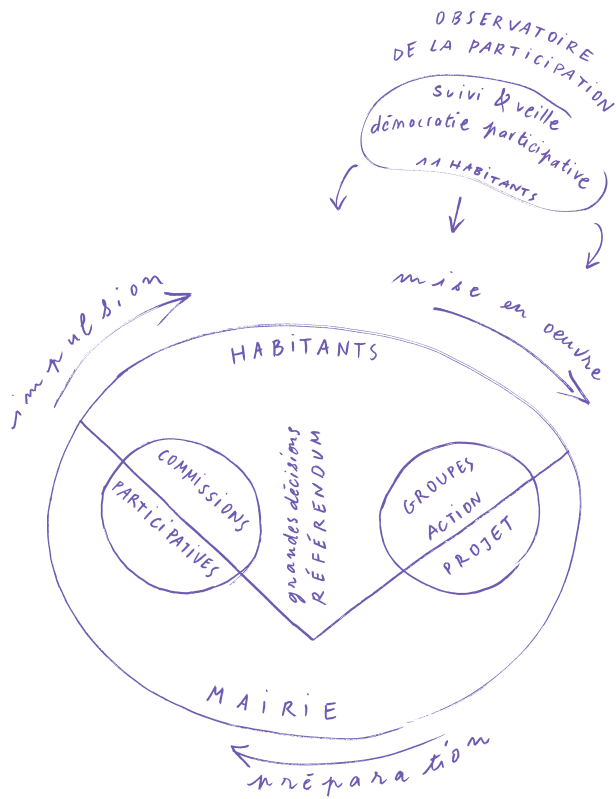 OBSERVATOIRE
DE LA PARTICIPATION
suivi & veille
démocratie participative
11 HABITANTS
impulsion
mise en oeuvre
HABITANTS
COMMISSIONS
PARTICIPATIVES
grandes décisions
RÉFÉRENDUM
GROUPES
ACTION
PROJET
MAIRIE
préparation